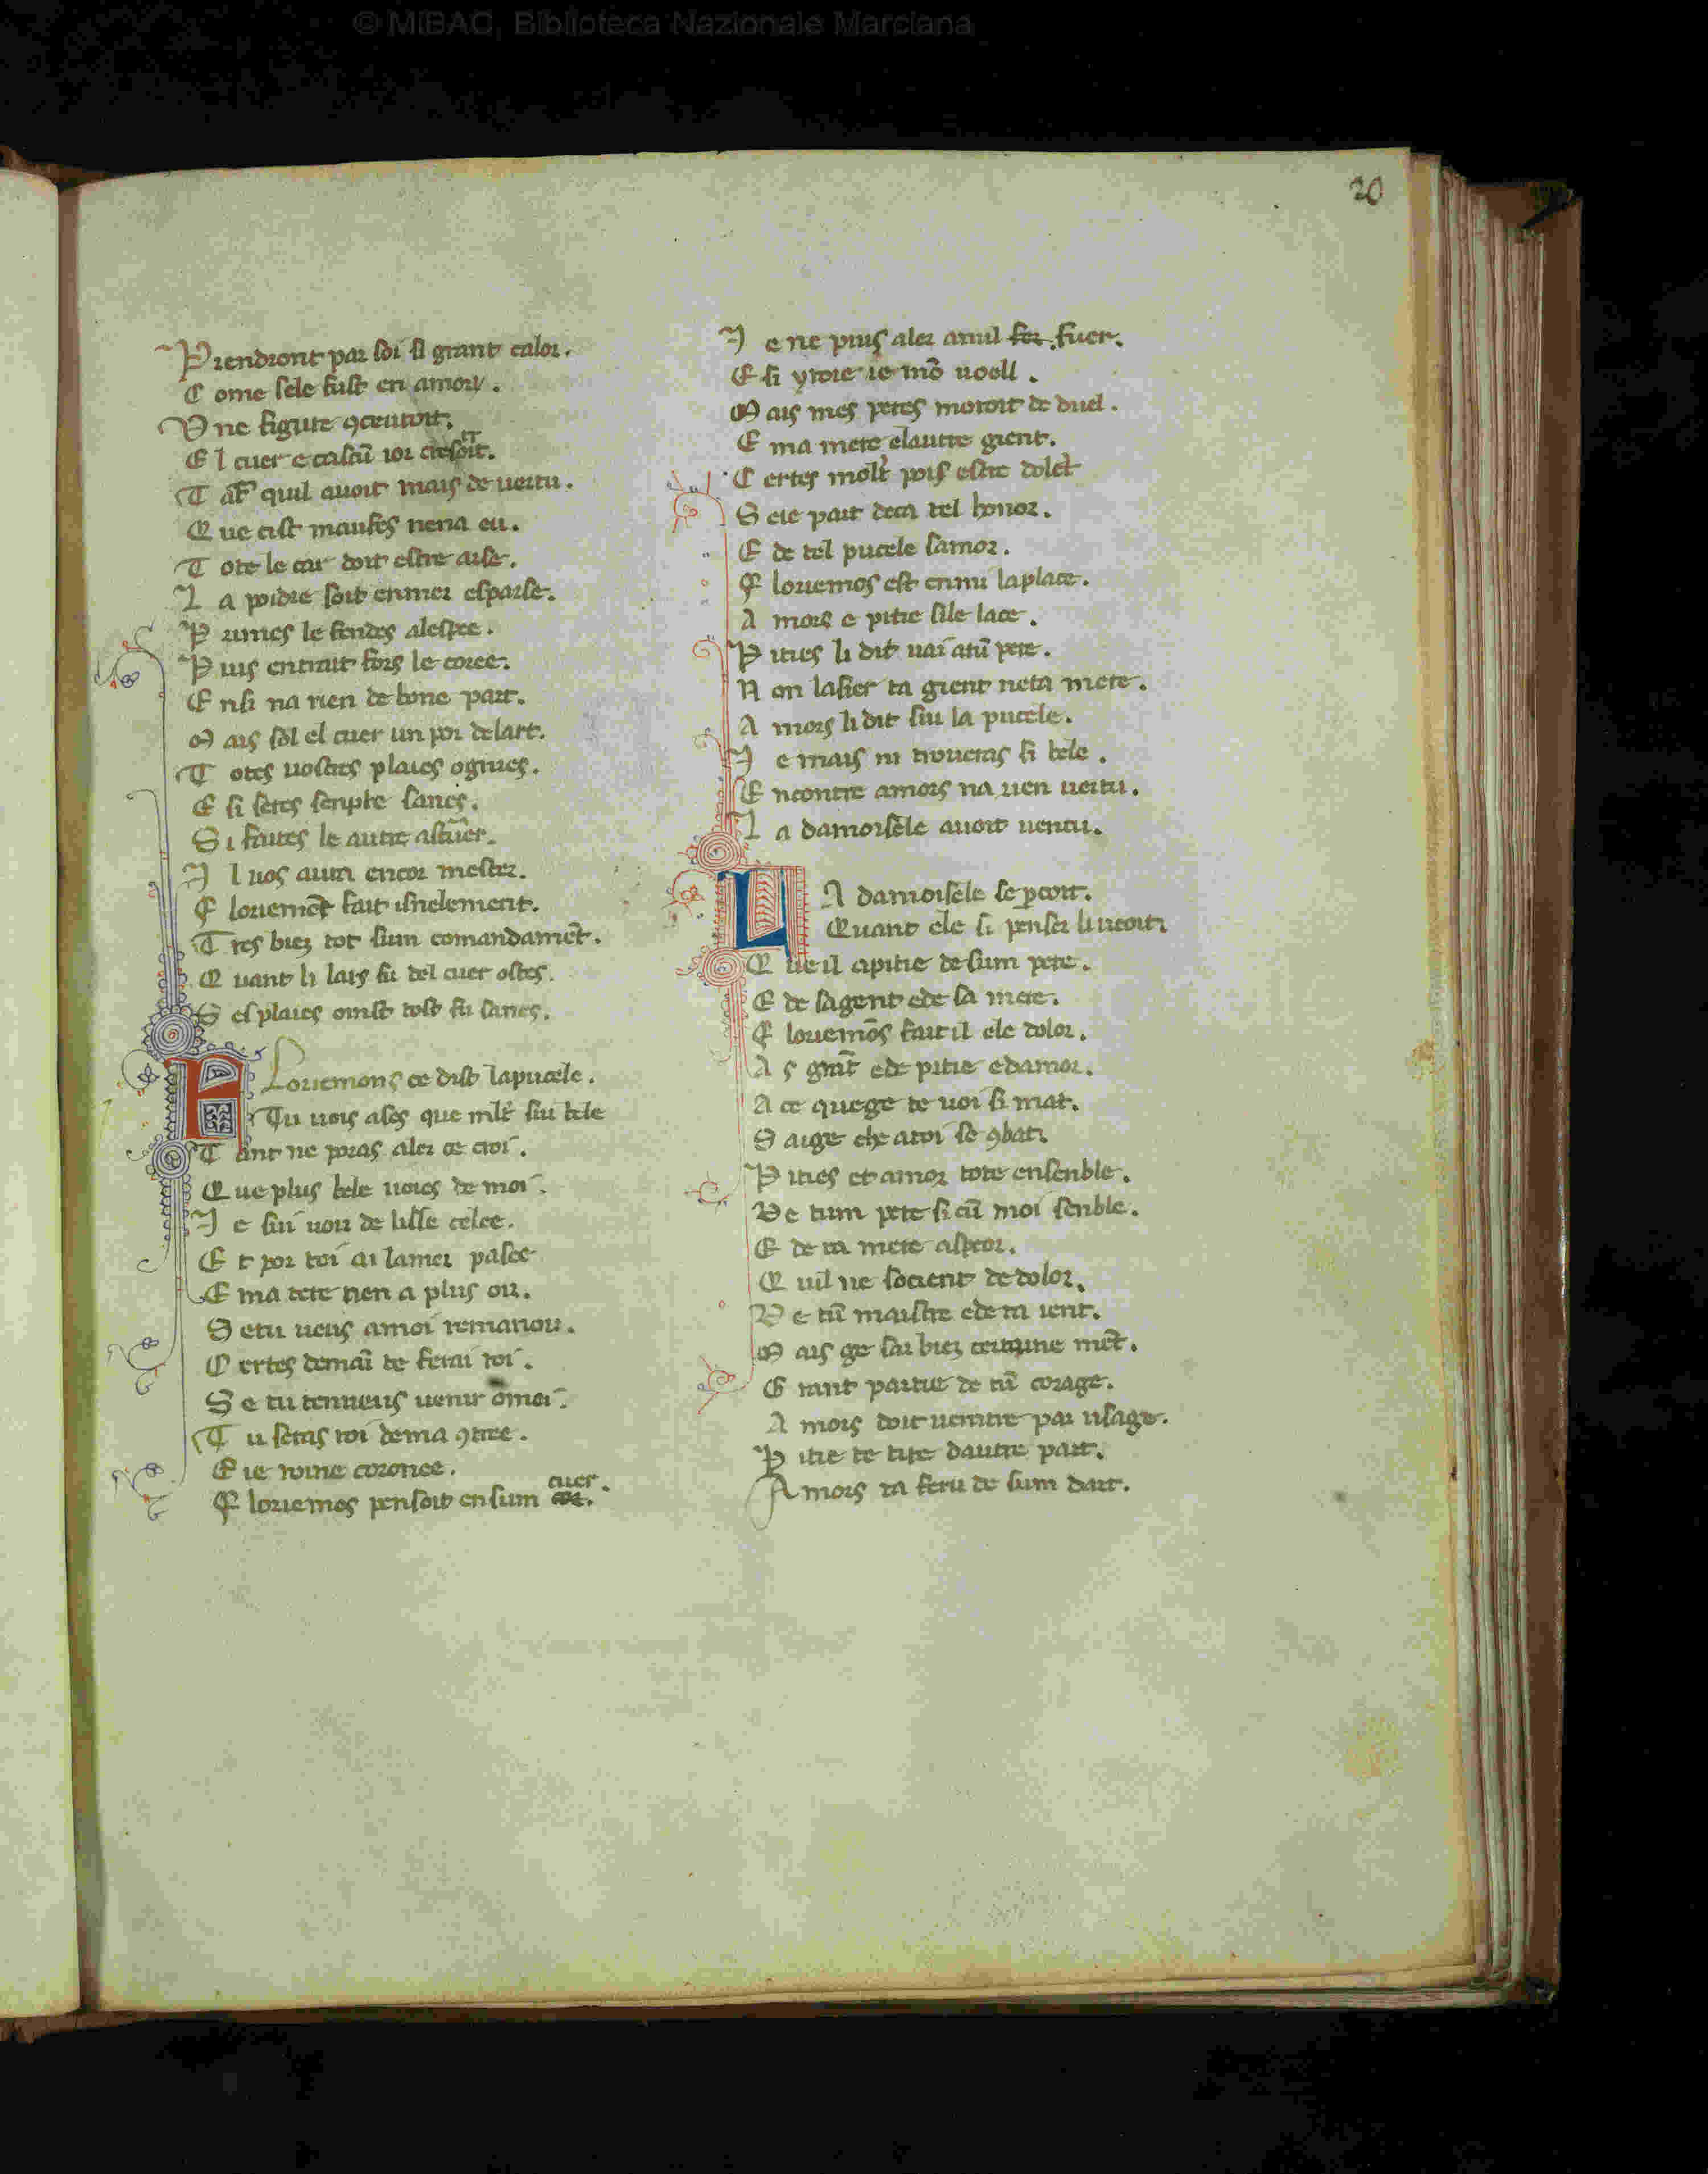 © MiBAC, Biblioteca Nazionale Marciana
20
Prendront par soi si grant calor.
C ome sele fust en amor.
V ne figure ꝯceutoit.
E l cuer e cascũ ior cresoit.
T ãt quil auoit mais de uertu.
Q ue cist maufes nena eu.
T ote le car doit estre arse.
L a poidre soit enmer esparse.
P rimes le fendes alespee.
P uis entrait fors le coree.
E nsi na rien de bone part.
M ais sol el cuer un poi delart.
T otes uostres plaies ognies.
E si seres senpre sanes.
S i faites le autre
I l uos aura encor mester.
F loriemẽt fait isnelement.
T res biez tot sum comandamẽt.
Q uant li lars fu del cuer ostes.
S es plaies oinst tost fu sanes.
F Loriemons ce dist lapucele.
Tu uois ases que mlt siu bele
T ant ne poras aler ce croi.
Q ue plus bele uoies de moi.
I e sui uou de lisse celee.
E t por toi ai lamer pasee
E ma tere nen a plus oir.
S etu ueus amoi remanoir.
C ertes demaĩ te ferai roi.
S e tu tenueus uenir o moi.
T u seras roi dema ꝯtree.
E ie roine coronee.
F loriemos pensoit ensum cuer.
I e ne puis aler anul fuer.
E si yroie ie mõ uoell.
M ais mes peres moroit de duel.
E ma mere elautre gient.
C ertes molt pois estre dolẽt
S eie part deca tel honor.
E de tel pucele samor.
F loriemos est enmi laplace.
A mors e pitie sile lace.
P ities li dit uai atũ pere.
N on lasier ta gient neta mere.
A mors li dit siu la pucele.
I e mais ni troueras si bele.
E ncontre amors na rien uertu.
L a damoisele auoit uencu.
L A damoisele se pcoit.
Quant ele si penser li ueoit
Q ue il apitie de sum pere.
E de sagent ede sa mere.
F loriemõs fait il ele dolor.
A s grãt ede pitie edamor.
A ce quege te uoi si mat.
S aige che atoi se ꝯbat.
P ities et amor tote ensenble.
D e tum pere si cũ moi senble.
E de ta mere aspeor.
Q uil ne socient de dolor.
D e tũ maistre ede ta ient.
M ais ge sai biez certaine mẽt.
G rant partie de tũ corage.
A mors doit uentre par usage.
P itie te tire dautre part.
A mors ta feru de sum dart.